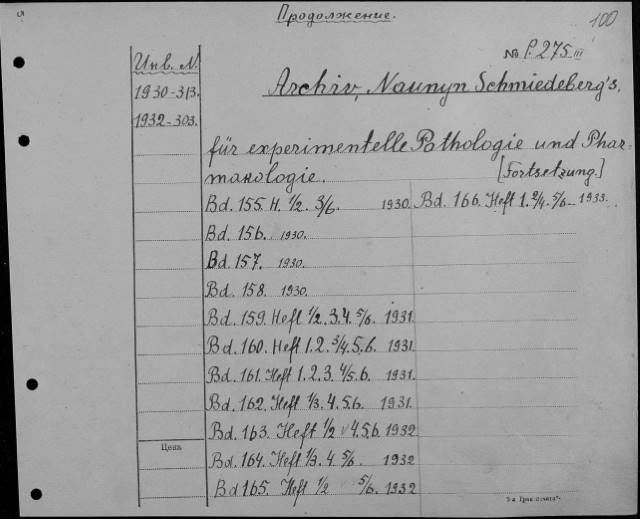 Продолжение.
100
№ P. 275 III
Инв. N.
1930 - 313.
1932 - 303.
Archiv, Naunyn Schmiedeberg's,
für experimentelle Pathologie und Phar-
makologie. [Fortsetzung.]
Bd. 155. H. 1/2. 3/6. 1930.
Bd. 156. 1930.
Bd. 157. 1930.
Bd. 158. 1930.
Bd. 159. Heft 1/2. 3. 4. 5/6. 1931.
Bd. 160. Heft 1. 2. 3/4. 5. 6. 1931.
Bd. 161. Heft 1. 2. 3. 4/5. 6. 1931.
Bd. 162. Heft 1/3. 4. 5. 6. 1931.
Bd. 163. Heft 1/2 v 4. 5. 6. 1932
Bd. 164. Heft 1/3. 4. 5/6. 1932
Bd. 165. Heft 1/2 5/6. 1932
Bd. 166. Heft 1. 2/4. 5/6 - 1933.
Цена